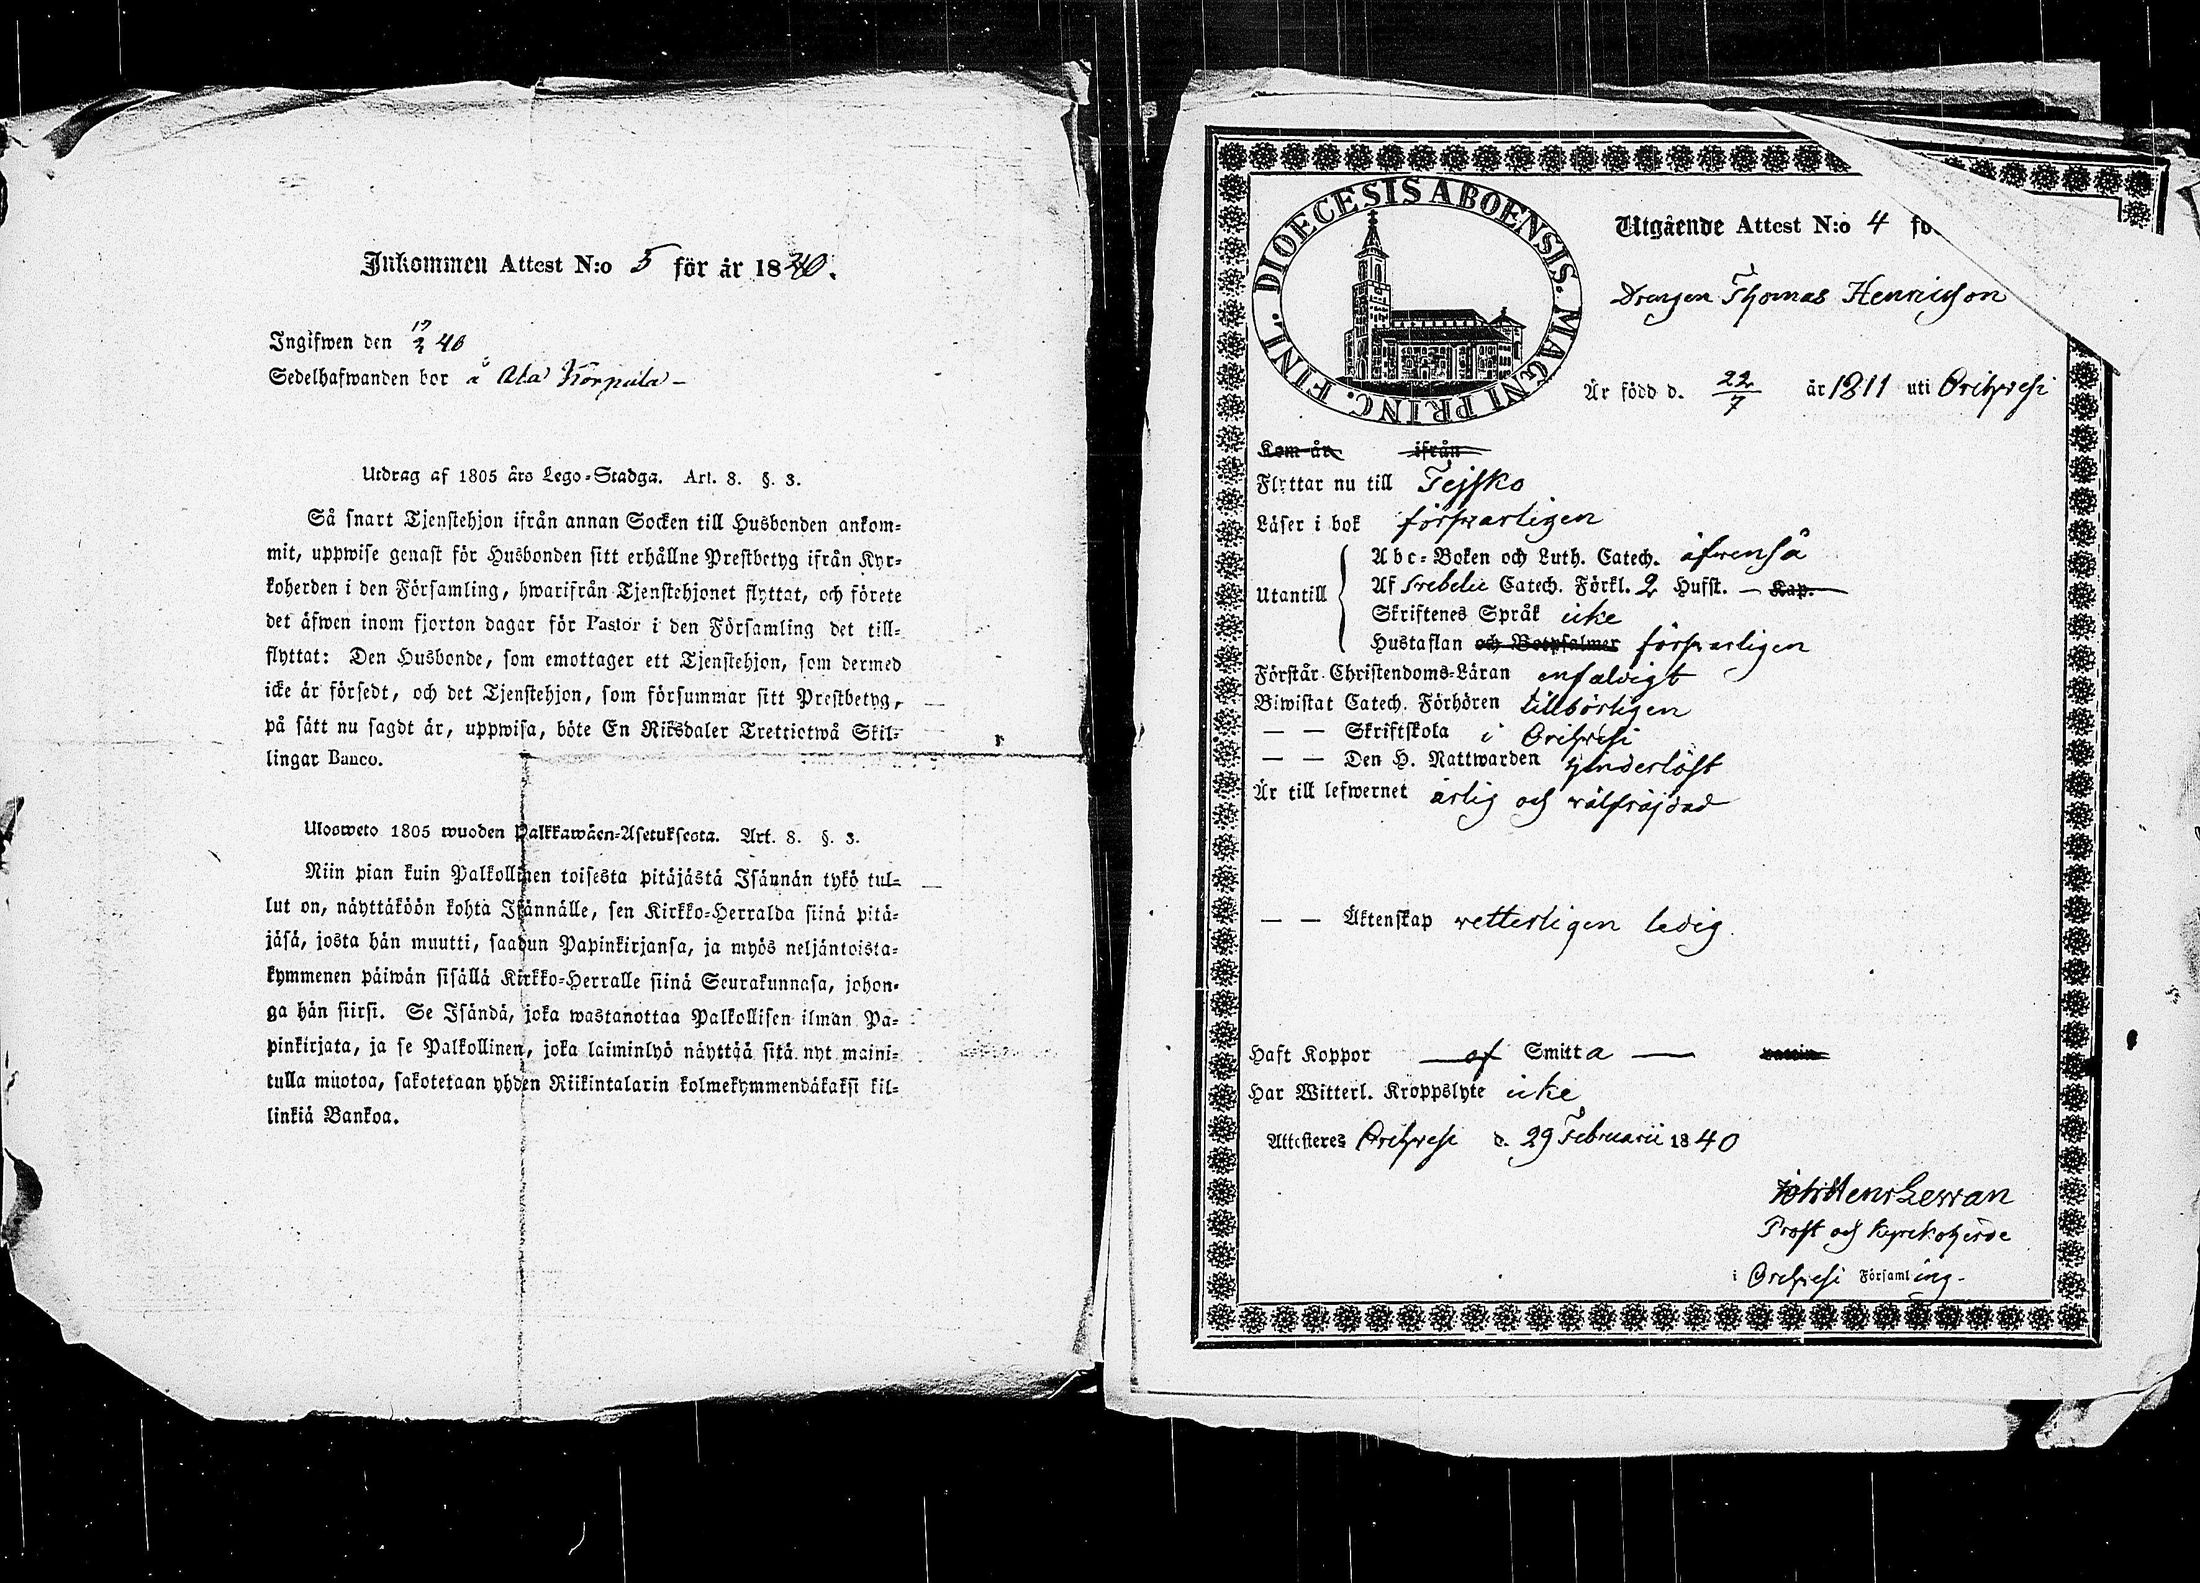 Inkommen Attest N:o 5 för år 1840.
Ingifwen den 40
Sedelhafwanden bor å Ala Korpula
Utdrag af 1805 års Lego-Stadga. Art. 8. §. 3.
Så snart Tjenstehjon ifrån annan Socken till Husbonden ankom-
mit, uppwise genast för Husbonden sitt erhållne Prestbetyg ifrån Kyr-
koherden i den Församling, hwarifrån Tjenstehjonet flyttat, och förete
det äfwen inom fjorton dagar för Pastor i den Församling det till-
flyttat: Den Husbonde, som emottager ett Tjenstehjon, som dermed
icke är försedt, och det Tjenstehjon, som försummar sitt Prestbetyg,
på sätt nu sagdt är, uppwisa, böte En Riksdaler Trettiotwå Skil-
lingar Banco.
Ulosweto 1805 wuoden Palkkawäen-Asetuksesta. Art. 8. §. 3.
Niin pian kuin Palkollinen toisesta pitäjästä Isännän tykö tul-
lut on, näyttäköön kohta Isännälle, sen Kirkko-Herralda siinä pitä-
jäsä, josta hän muutti, saadun Papinkirjansa, ja myös neljäntoista-
kymmenen päiwän sisällä Kirkko-Herralle siinä Seurakunnasa, johon-
ga hän siirsi. Se Isändä, joka wastanottaa Palkollisen ilman Pa-
pinkirjata, ja se Palkollinen, joka laiminlyö näyttää sitä nyt maini-
tulla muotoa, sakotetaan yhden Riikintalarin kolmekymmendäkaksi kil-
linkiä Bankoa.
DIOECESIS ABOENSIS. MAGNI PRINC. FINL.
Utgående Attest N:o 4 fö
Drengen Thomas Henricsson
Är född d. 22/7 år 1811 uti Orihvesi
Kom år ifrån
Flyttar nu till Tejsko
Läser i bok försvarligen
Utantill
Abc-Boken och Luth. Catech. äfvenså
Af Svebelii Catech. Förkl. 2 Hufst. — Kap.
Skriftenes Språk icke
Hustaflan och Botpsalmer försvarligen
Förstår Christendoms-Läran enfaldigt
Biwistat Catech. Förhören tillbörligen
— — Skriftskola i Orihvesi
— — Den H. Nattwarden hinderlöst
Är till lefwernet ärlig och välfräjdad
— — Äktenskap vetterligen ledig.
Haft Koppor — af Smitta — vaccin
Har Witterl. Kroppslyte icke
Attesteres Orihvesi d. 29 Februarii 1840
Joh Henr Levvan
Prost och Kyrckoherde
i Orihvesi Församling.